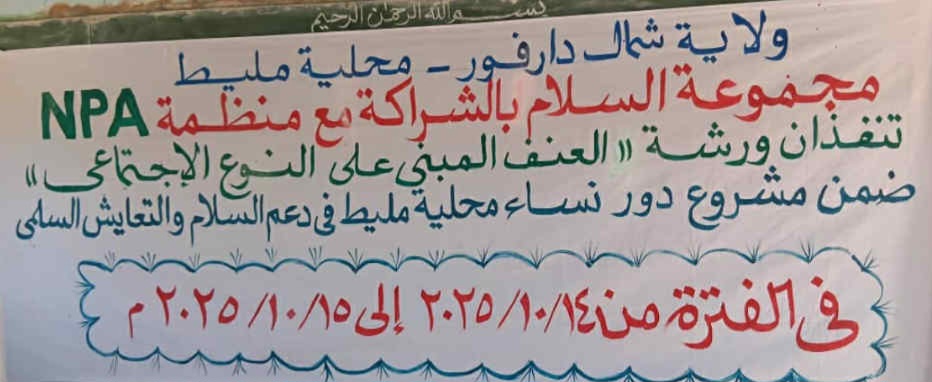 بسم الله الرحمن الرحيم
ولاية شمال دارفور - محلية مليط
مجموعة السلام بالشراكة مع منظمة NPA
تنفذان ورشة "العنف المبني على النوع الإجتماعي"
ضمن مشروع دور نساء محلية مليط في دعم السلام والتعايش السلمي
في الفترة من ٢٠٢٥/١٠/١٤ إلى ٢٠٢٥/١٠/١٥ م